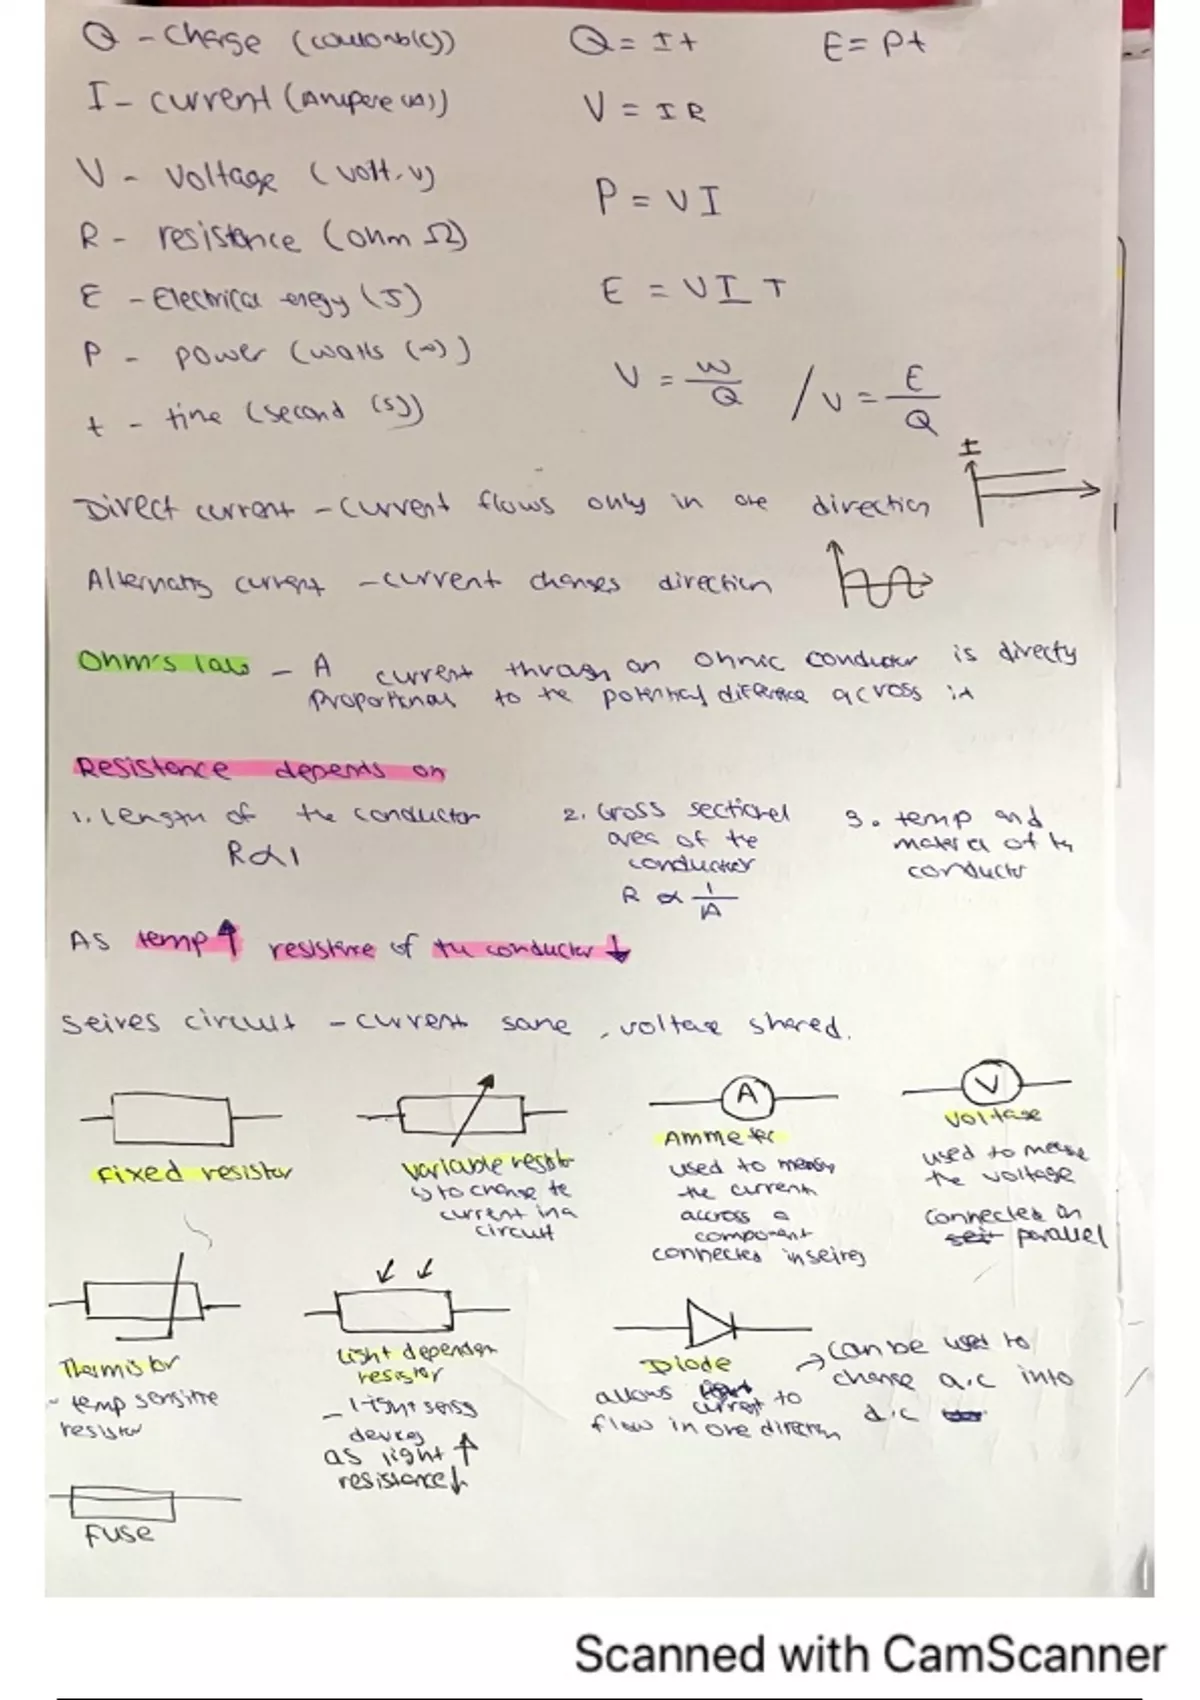 Q - Charge (coulomb(c)) Q = It E = Pt
I - current (Ampere (A)) V = IR
V - voltage (volt, v) P = VI
R - resistance (ohm Ω)
E - Electrical enegy (J) E = VIT
P - power (watts (w)) V = W/Q / V = E/Q
t - time (second (s))
I
Direct current - current flows only in one direction
Alternating current - current changes direction
Ohm's law - A current through an ohmic conductor is directy
proportional to the potential difference across it
Resistance depends on
1. Length of the conductor
R α l
2. Cross sectional
area of the
conductor
R α 1/A
3. temp and
material of the
conductor
As temp ↑ resistance of the conductor ↓
Seires circuit - current same, voltage shared.
Fixed resistor
variable resistor
↳ to change the
current in a
circuit
A
Ammeter
used to measure
the current
accross a
component
connected in seires
V
Voltage
used to measure
the voltage
connected in
parallel
Thermistor
- temp sensitive
resistor
Light dependent
resistor
- light sensing
devices
as light ↑
resistance ↓
Diode
allows current to
flow in one direction
→ can be used to
change a.c into
d.c
Fuse
Scanned with CamScanner